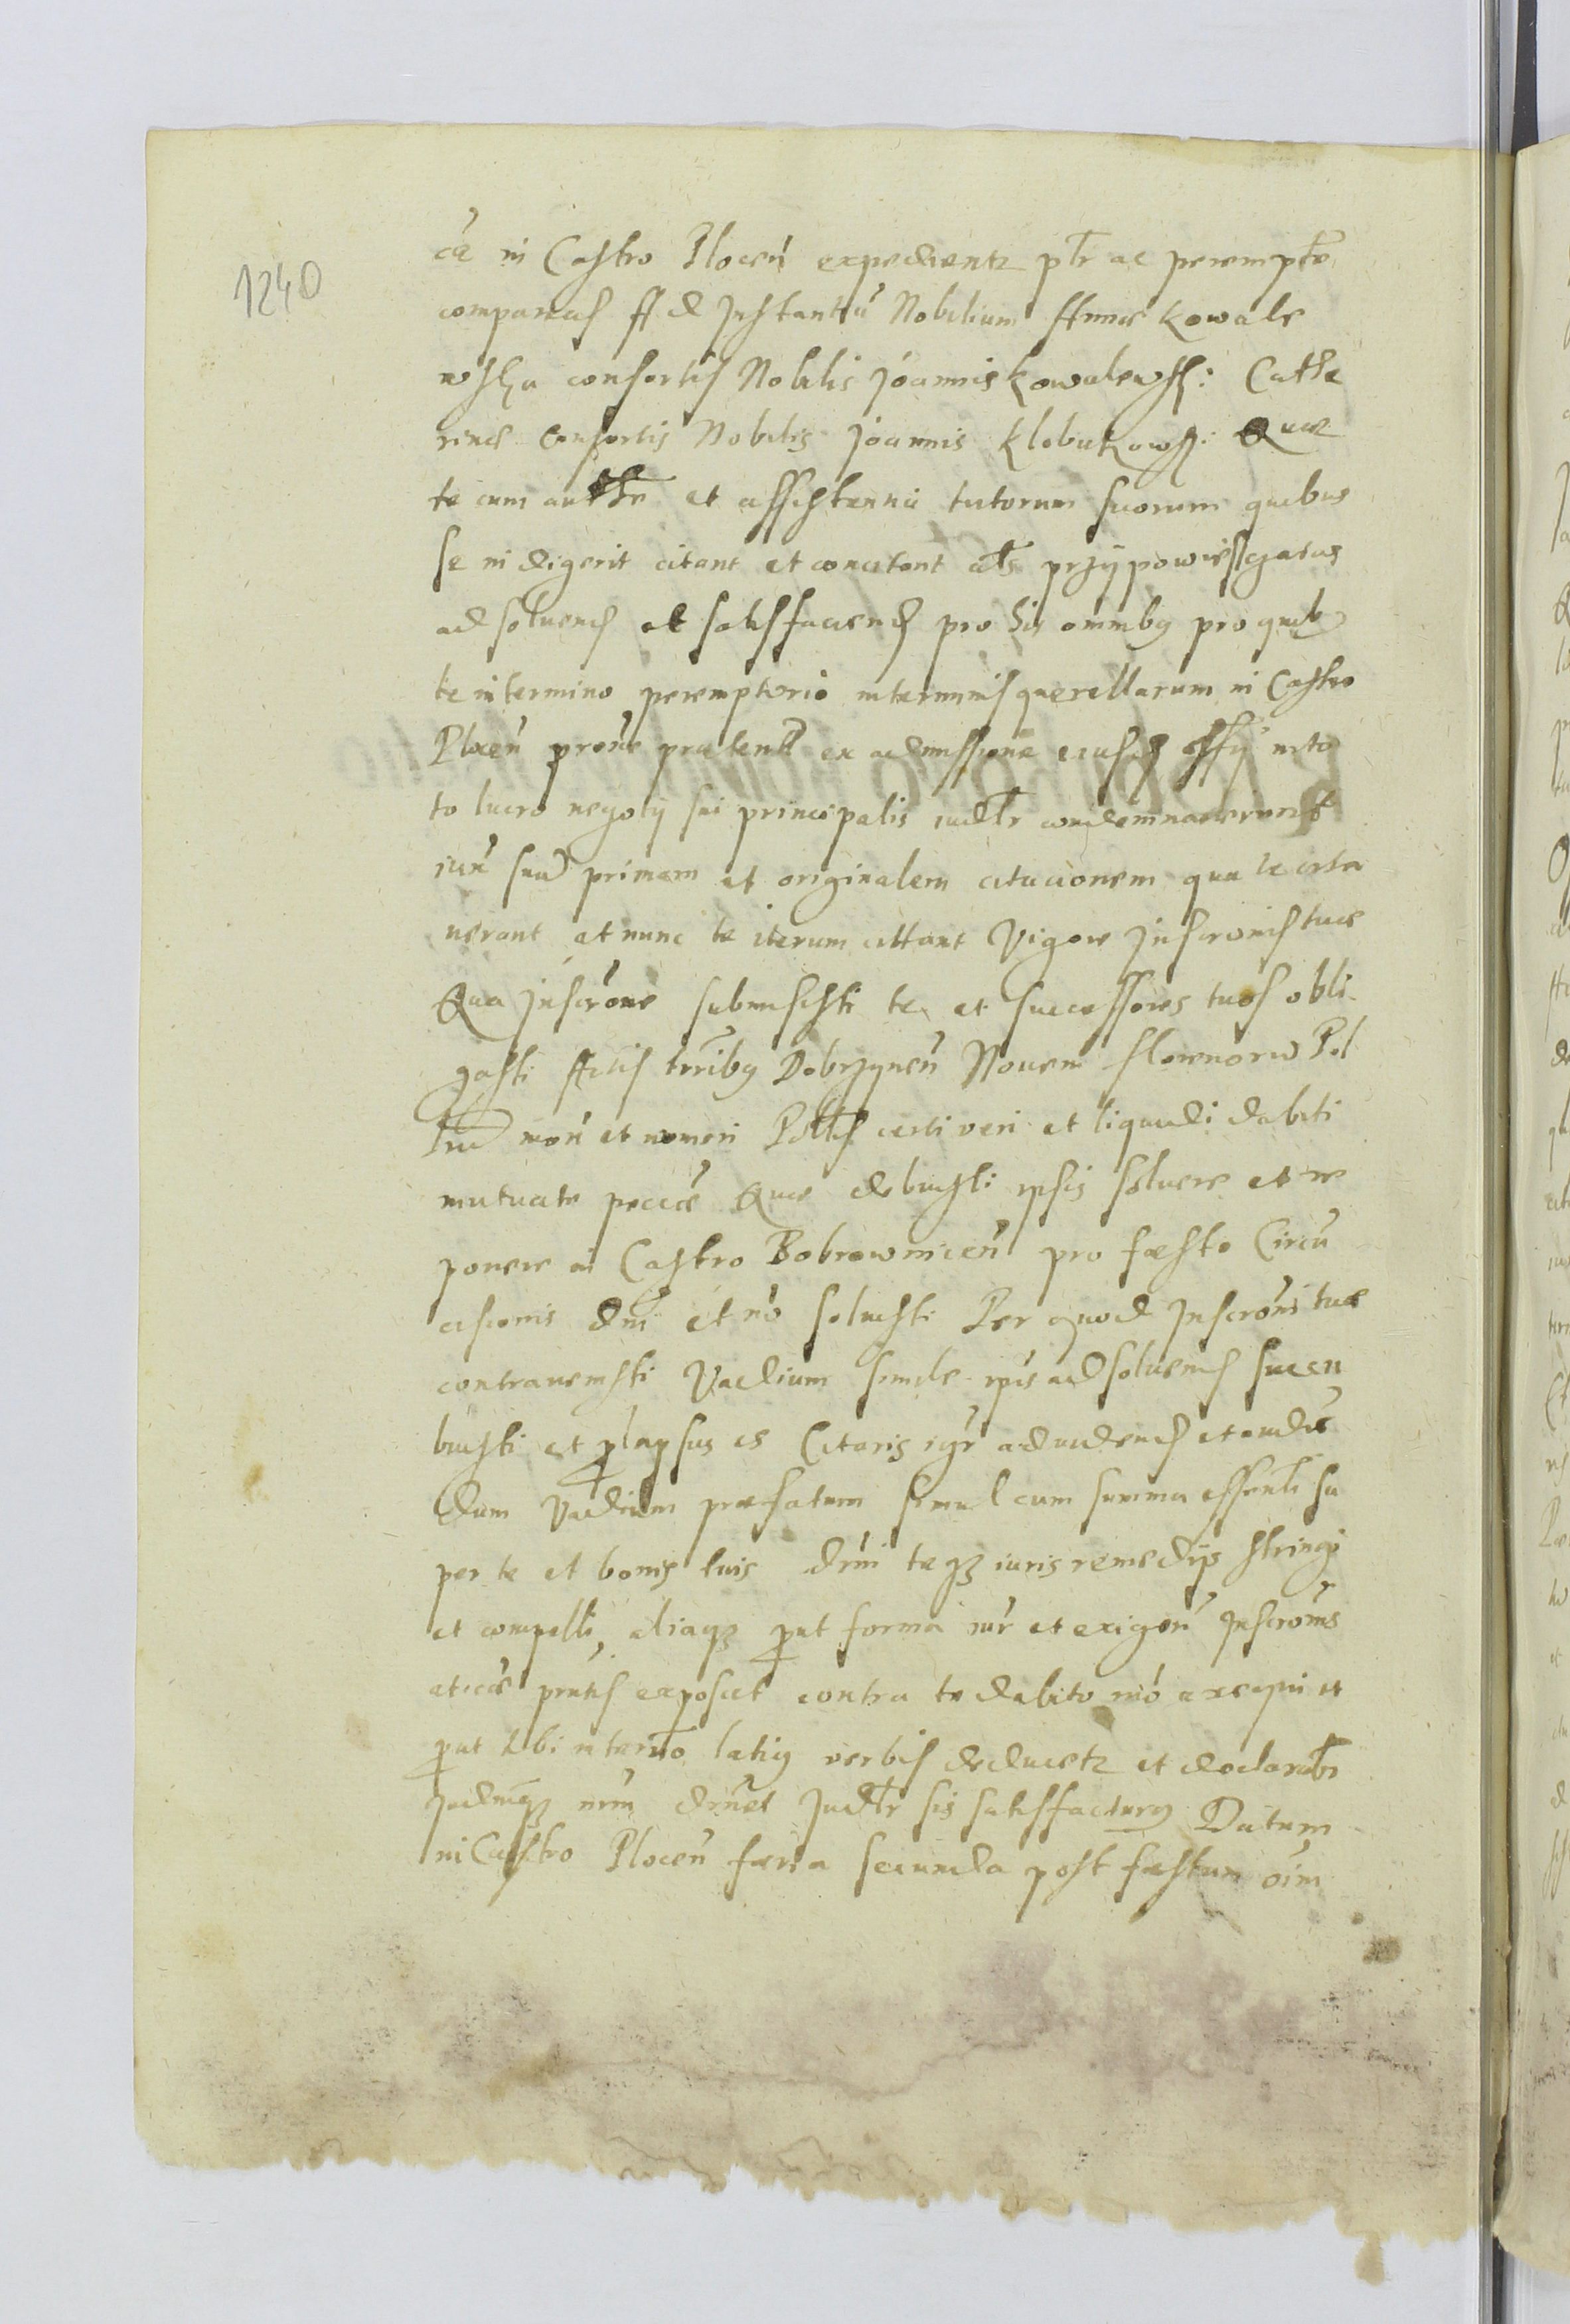 1240
cā in Castro Plocen̄ expedientz ptr̄ ac perempte
compareas Ad Instantiā Nobilium Annæ Kowale
wska consortis Nobilis Joannis Kowalewsk: Cathe
rinæ Consortis Nobilis Joannis Klobukowsk: Quæ
te cum autthe et assistentia tutorum suorum quibus
se in digerit citant et concitant als przypowiesczaias
ad soluend et satisfaciend pro his omnibg pro quib
te in termino peremptorio in terminis querellarum in Castro
Plocen̄ prone pratentz ex admissione eiusd offy in to
to lucro negotij sui principalis iudtr condemnauerunt
iux suā primam et originalem citacionem qua te cita
uerant et nunc te iterum cittant Vigore Inscronis tuæ
Qua Inscrone submisisti te et successores tuos obli
gasti Actis trribg Dobrzynen̄ Nouem florenorū Pol
mon̄ et numeri Poltis certi veri et liquidi debiti
mutuate peccæ Quæ debuisti ipsis soluere et re
ponere in Castro Bobrownicen̄ pro fæsto Circū
cisionis Dni et nō soluisti Per quod Inscroni tuæ
contrauenisti Vadium simile ipis ad soluend sucu
buisti et plapsus es Citaris igr ad uidend et audiē
dum Vadium præfatum simul cum summa essenti su
per te et bonis tuis drni teqz iuris remedijs stringi
et compelli, aliaqz put forma iur et exigen̄ Inscronis
aticæ pntis exposcet contra te debito mō exequi et
put tibi in termo latig verbis deducetz et declarabr
Judmqz nrm drnet Judtr sis satisfacturg Datum
in Castro Plocen̄ feria secunda post fæstum oim